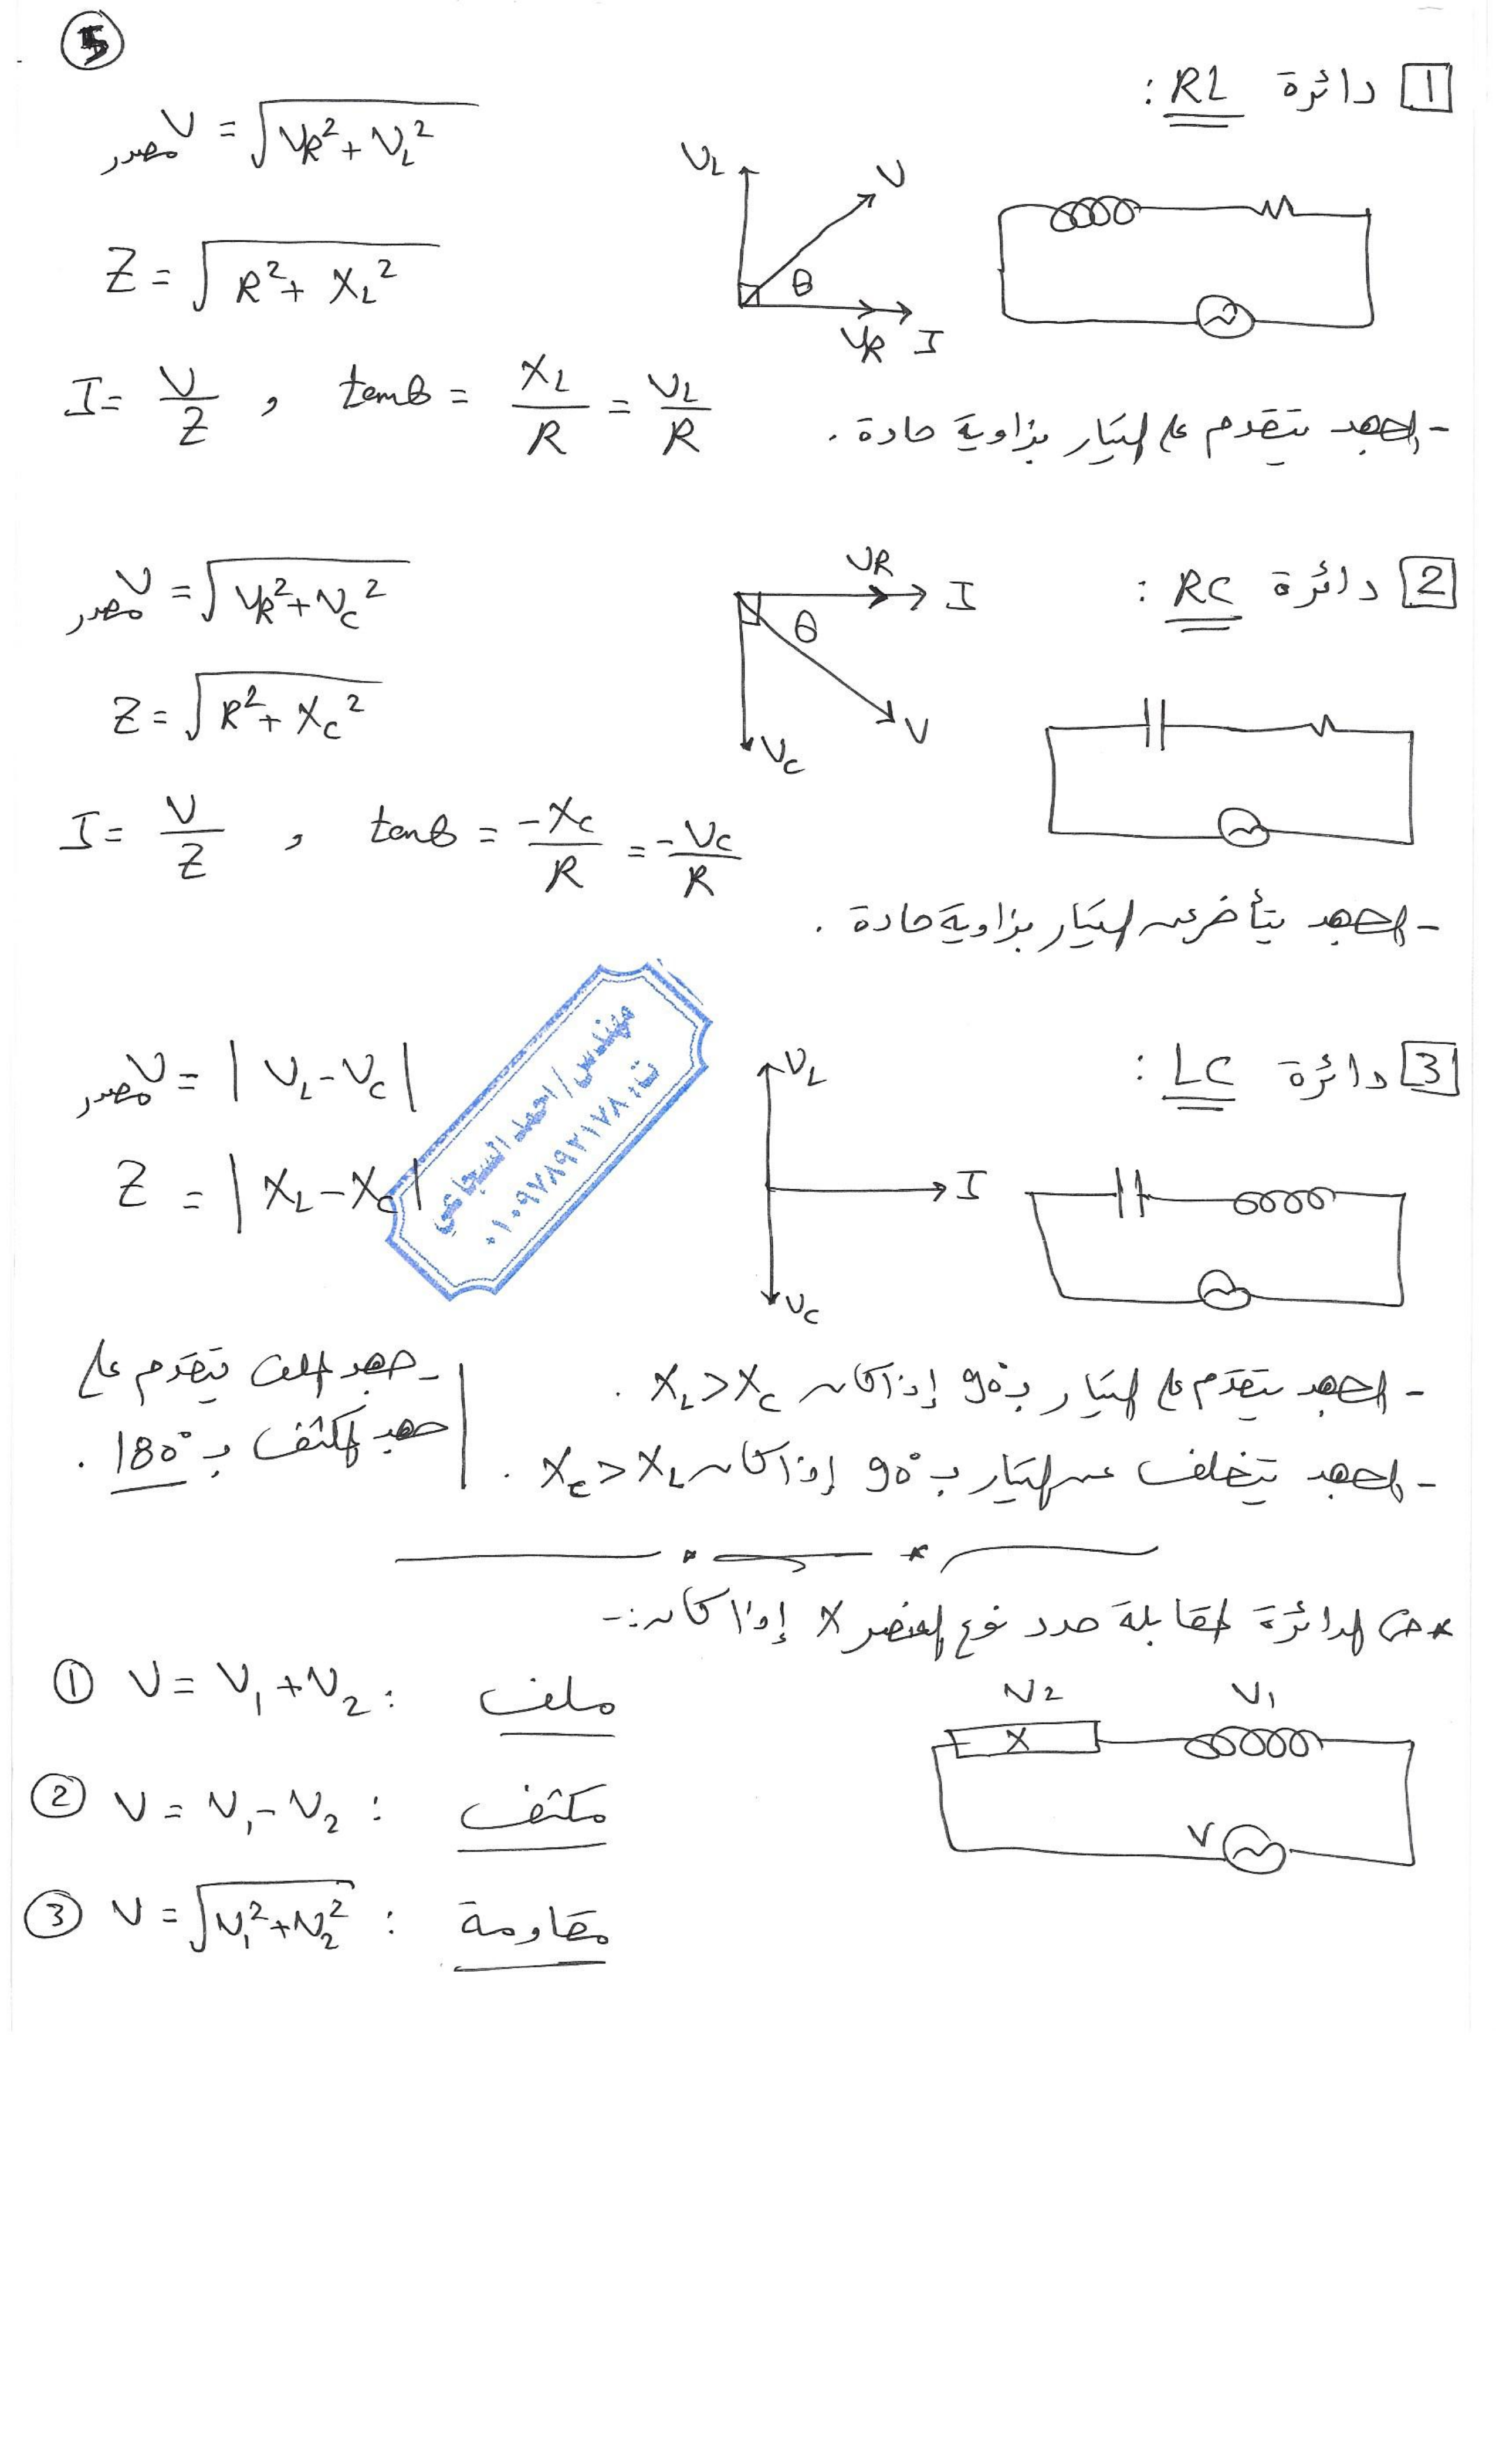 5
1 دائرة RL :
V مصدر = √(VR² + VL²)
Z = √(R² + XL²)
I = V/Z , tanθ = XL/R = VL/R
VL
V
θ
VR I
- الجهد يتقدم على التيار بزاوية حادة .
2 دائرة RC :
V مصدر = √(VR² + VC²)
Z = √(R² + XC²)
I = V/Z , tanθ = -XC/R = -VC/R
VR
I
θ
V
VC
- الجهد يتأخر عن التيار بزاوية حادة .
3 دائرة LC :
V مصدر = | VL - VC |
Z = | XL - XC |
VL
I
VC
مهندس/احمد السجاعي
ت: ٠١٠٩٧٨٩٢١٧٨
- الجهد يتقدم على التيار بـ 90° إذا كان XL > XC .
- الجهد يتخلف عن التيار بـ 90° إذا كان XC > XL .
- جهد الملف يتقدم على
جهد المكثف بـ 180° .
* في الدائرة المقابلة حدد نوع العنصر X إذا كان :-
① V = V1 + V2 : ملف
② V = V1 - V2 : مكثف
③ V = √(V1² + V2²) : مقاومة
V2
V1
X
V